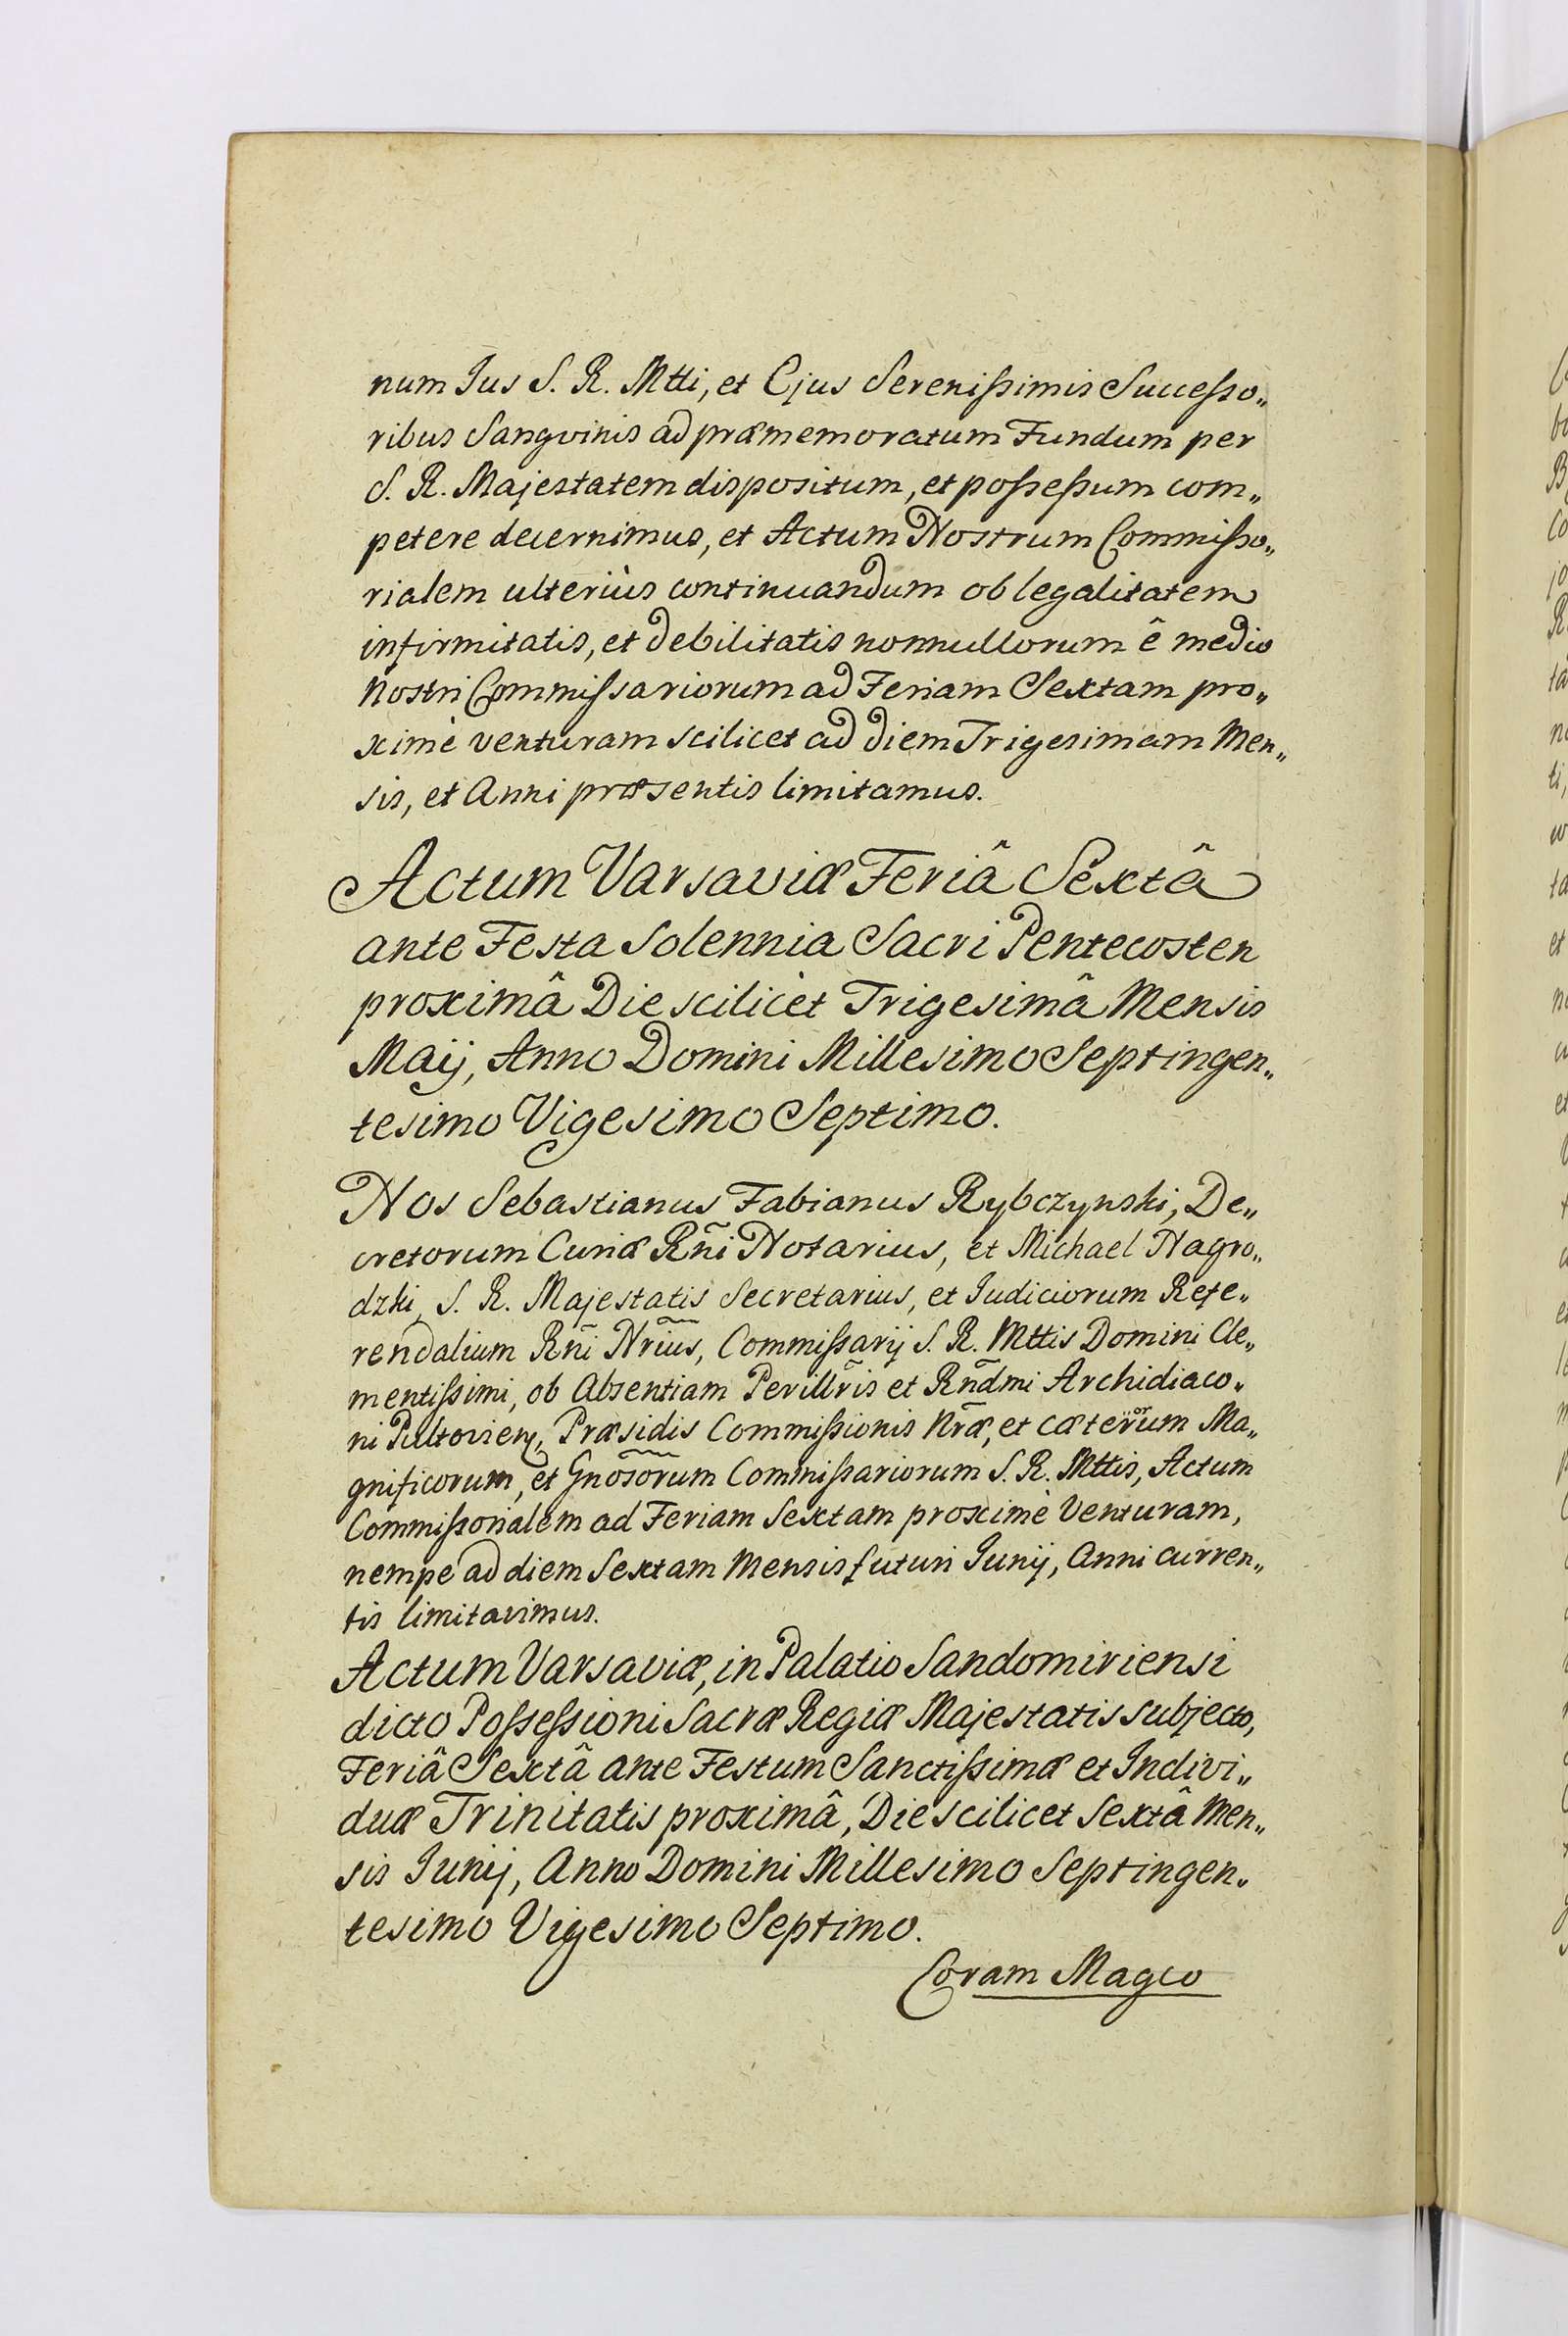 num Jus S. R. Mtti, et Ejus Serenißimis Successo„
ribus Sangvinis ad præmemoratum Fundum per
S. R. Majestatem dispositum, et poßeßum com„
petere decernimus, et Actum Nostrum Commißo„
rialem ulteriùs continuandum ob legalitatem
infirmitatis, et debilitatis nonnullorum ê medio
Nostri Commissariorum ad Feriam Sextam pro„
ximè venturam scilicet ad diem Trigesimam Men„
sis, et Anni præsentis limitamus.
Actum Varsaviæ Feriâ Sextâ
ante Festa Solennia Sacri Pentecosten
proximâ Die scilicèt Trigesimâ Mensis
Maÿ, Anno Domini Millesimo Septingen„
tesimo Vigesimo Septimo.
Nos Sebastianus Fabianus Rybczynski, De„
cretorum Curiæ Rñi Notarius, et Michael Nagro„
dzki, S. R. Majestatis Secretarius, et Judiciorum Refe„
rendalium Rñi Nrĩus, Commißarij S. R. Mttis Domini Cle„
mentißimi, ob Absentiam Perillr̃is et Rñdmi Archidiaco„
ni Pultovien, Præsidis Commißionis Nr̃æ, et cæterorum Ma„
gnificorum, et Gnõsorum Commißariorum S. R. Mttis, Actum
Commißorialem ad Feriam Sextam proximè Venturam,
nempe ad diem Sextam Mensis futuri Junij, Anni curren„
tis limitavimus.
Actum Varsaviæ, in Palatio Sandomiriensi
dicto Poßeßioni Sacræ Regiæ Majestatis subjecto,
Feriâ Sextâ ante Festum Sanctißimæ et Indivi„
duæ Trinitatis proximâ, Die scilicet Sextâ Men„
sis Junij, Anno Domini Millesimo Septingen„
tesimo Vigesimo Septimo.
Coram Magco